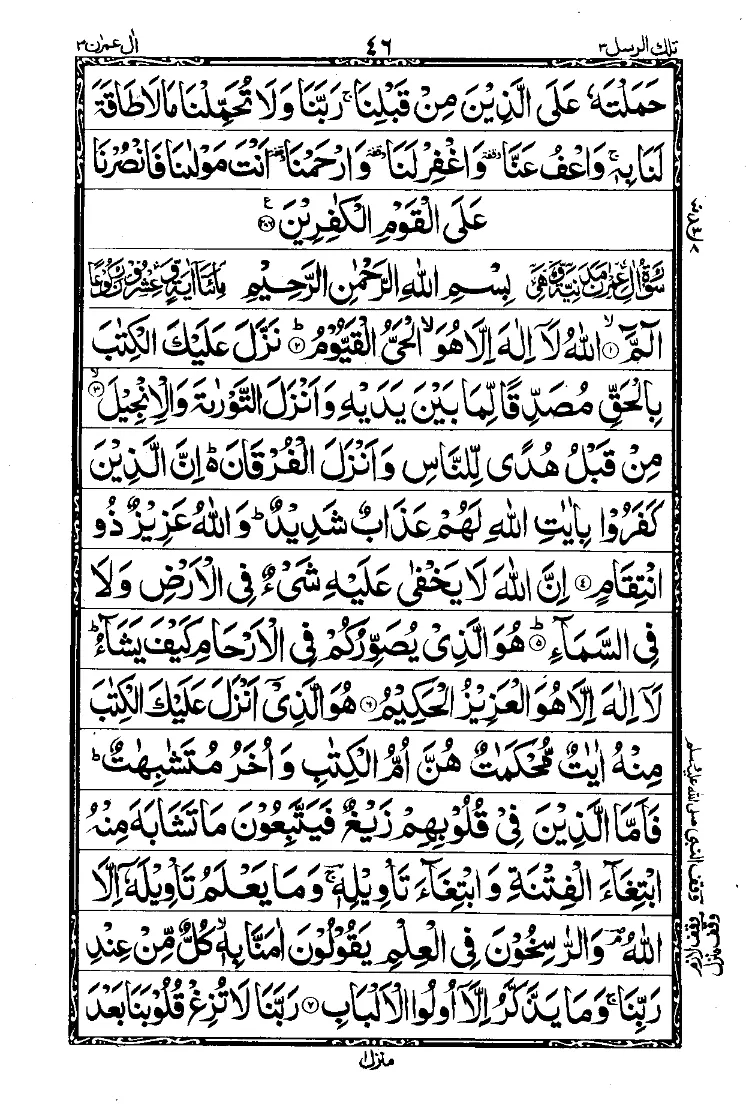 تلك الرسل ٣
٤٦
اٰل عمرٰن ٣
حَمَلْتَهٗ عَلَى الَّذِيْنَ مِنْ قَبْلِنَا ۚ رَبَّنَا وَلَا تُحَمِّلْنَا مَا لَا طَاقَةَ
لَنَا بِهٖ ۚ وَاعْفُ عَنَّا ۥ وَاغْفِرْ لَنَا ۥ وَارْحَمْنَا ۥ اَنْتَ مَوْلٰىنَا فَانْصُرْنَا
عَلَى الْقَوْمِ الْكٰفِرِيْنَ ۝٢٨٦
سُوْرَةُ اٰلِ عِمْرٰنَ مَدَنِيَّةٌ وَّهِيَ بِسْمِ اللهِ الرَّحْمٰنِ الرَّحِيْمِ مِائَتَا اٰيَةٍ وَّعِشْرُوْنَ رُكُوْعًا
الٓمّٓ ۝١ اللهُ لَاۤ اِلٰهَ اِلَّا هُوَ ۙ الْحَيُّ الْقَيُّوْمُ ۝٢ؕ نَزَّلَ عَلَيْكَ الْكِتٰبَ
بِالْحَقِّ مُصَدِّقًا لِّمَا بَيْنَ يَدَيْهِ وَاَنْزَلَ التَّوْرٰىةَ وَالْاِنْجِيْلَ ۝٣ۙ
مِنْ قَبْلُ هُدًى لِّلنَّاسِ وَاَنْزَلَ الْفُرْقَانَ ؕ اِنَّ الَّذِيْنَ
كَفَرُوْا بِاٰيٰتِ اللهِ لَهُمْ عَذَابٌ شَدِيْدٌ ؕ وَاللهُ عَزِيْزٌ ذُو
انْتِقَامٍ ۝٤ اِنَّ اللهَ لَا يَخْفٰى عَلَيْهِ شَيْءٌ فِى الْاَرْضِ وَلَا
فِى السَّمَآءِ ۝٥ؕ هُوَ الَّذِيْ يُصَوِّرُكُمْ فِى الْاَرْحَامِ كَيْفَ يَشَآءُ ؕ
لَاۤ اِلٰهَ اِلَّا هُوَ الْعَزِيْزُ الْحَكِيْمُ ۝٦ هُوَ الَّذِيْۤ اَنْزَلَ عَلَيْكَ الْكِتٰبَ
مِنْهُ اٰيٰتٌ مُّحْكَمٰتٌ هُنَّ اُمُّ الْكِتٰبِ وَاُخَرُ مُتَشٰبِهٰتٌ ؕ
فَاَمَّا الَّذِيْنَ فِيْ قُلُوْبِهِمْ زَيْغٌ فَيَتَّبِعُوْنَ مَا تَشَابَهَ مِنْهُ
ابْتِغَآءَ الْفِتْنَةِ وَابْتِغَآءَ تَاْوِيْلِهٖ ۚ وَمَا يَعْلَمُ تَاْوِيْلَهٗۤ اِلَّا
اللهُ ۘ وَالرّٰسِخُوْنَ فِى الْعِلْمِ يَقُوْلُوْنَ اٰمَنَّا بِهٖ ۙ كُلٌّ مِّنْ عِنْدِ
رَبِّنَا ۚ وَمَا يَذَّكَّرُ اِلَّاۤ اُولُوا الْاَلْبَابِ ۝٧ رَبَّنَا لَا تُزِغْ قُلُوْبَنَا بَعْدَ
وقف النبى صلى الله عليه وسلم
وقف لازم
وقف منزل
منزل ١